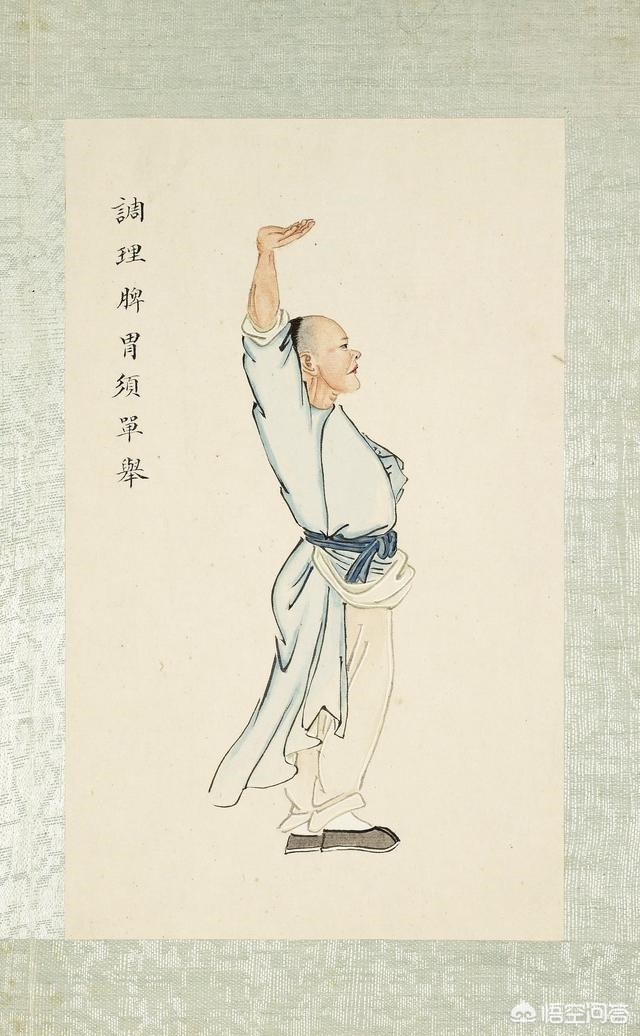 調理脾胃須單舉
悟空问答